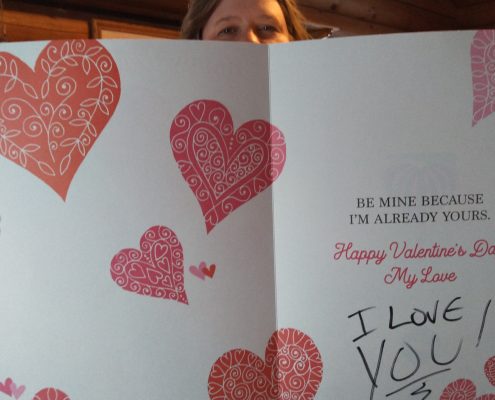 BE MINE BECAUSE
I'M ALREADY YOURS.
Happy Valentine's Da
My Love
I LOVE
YOU!